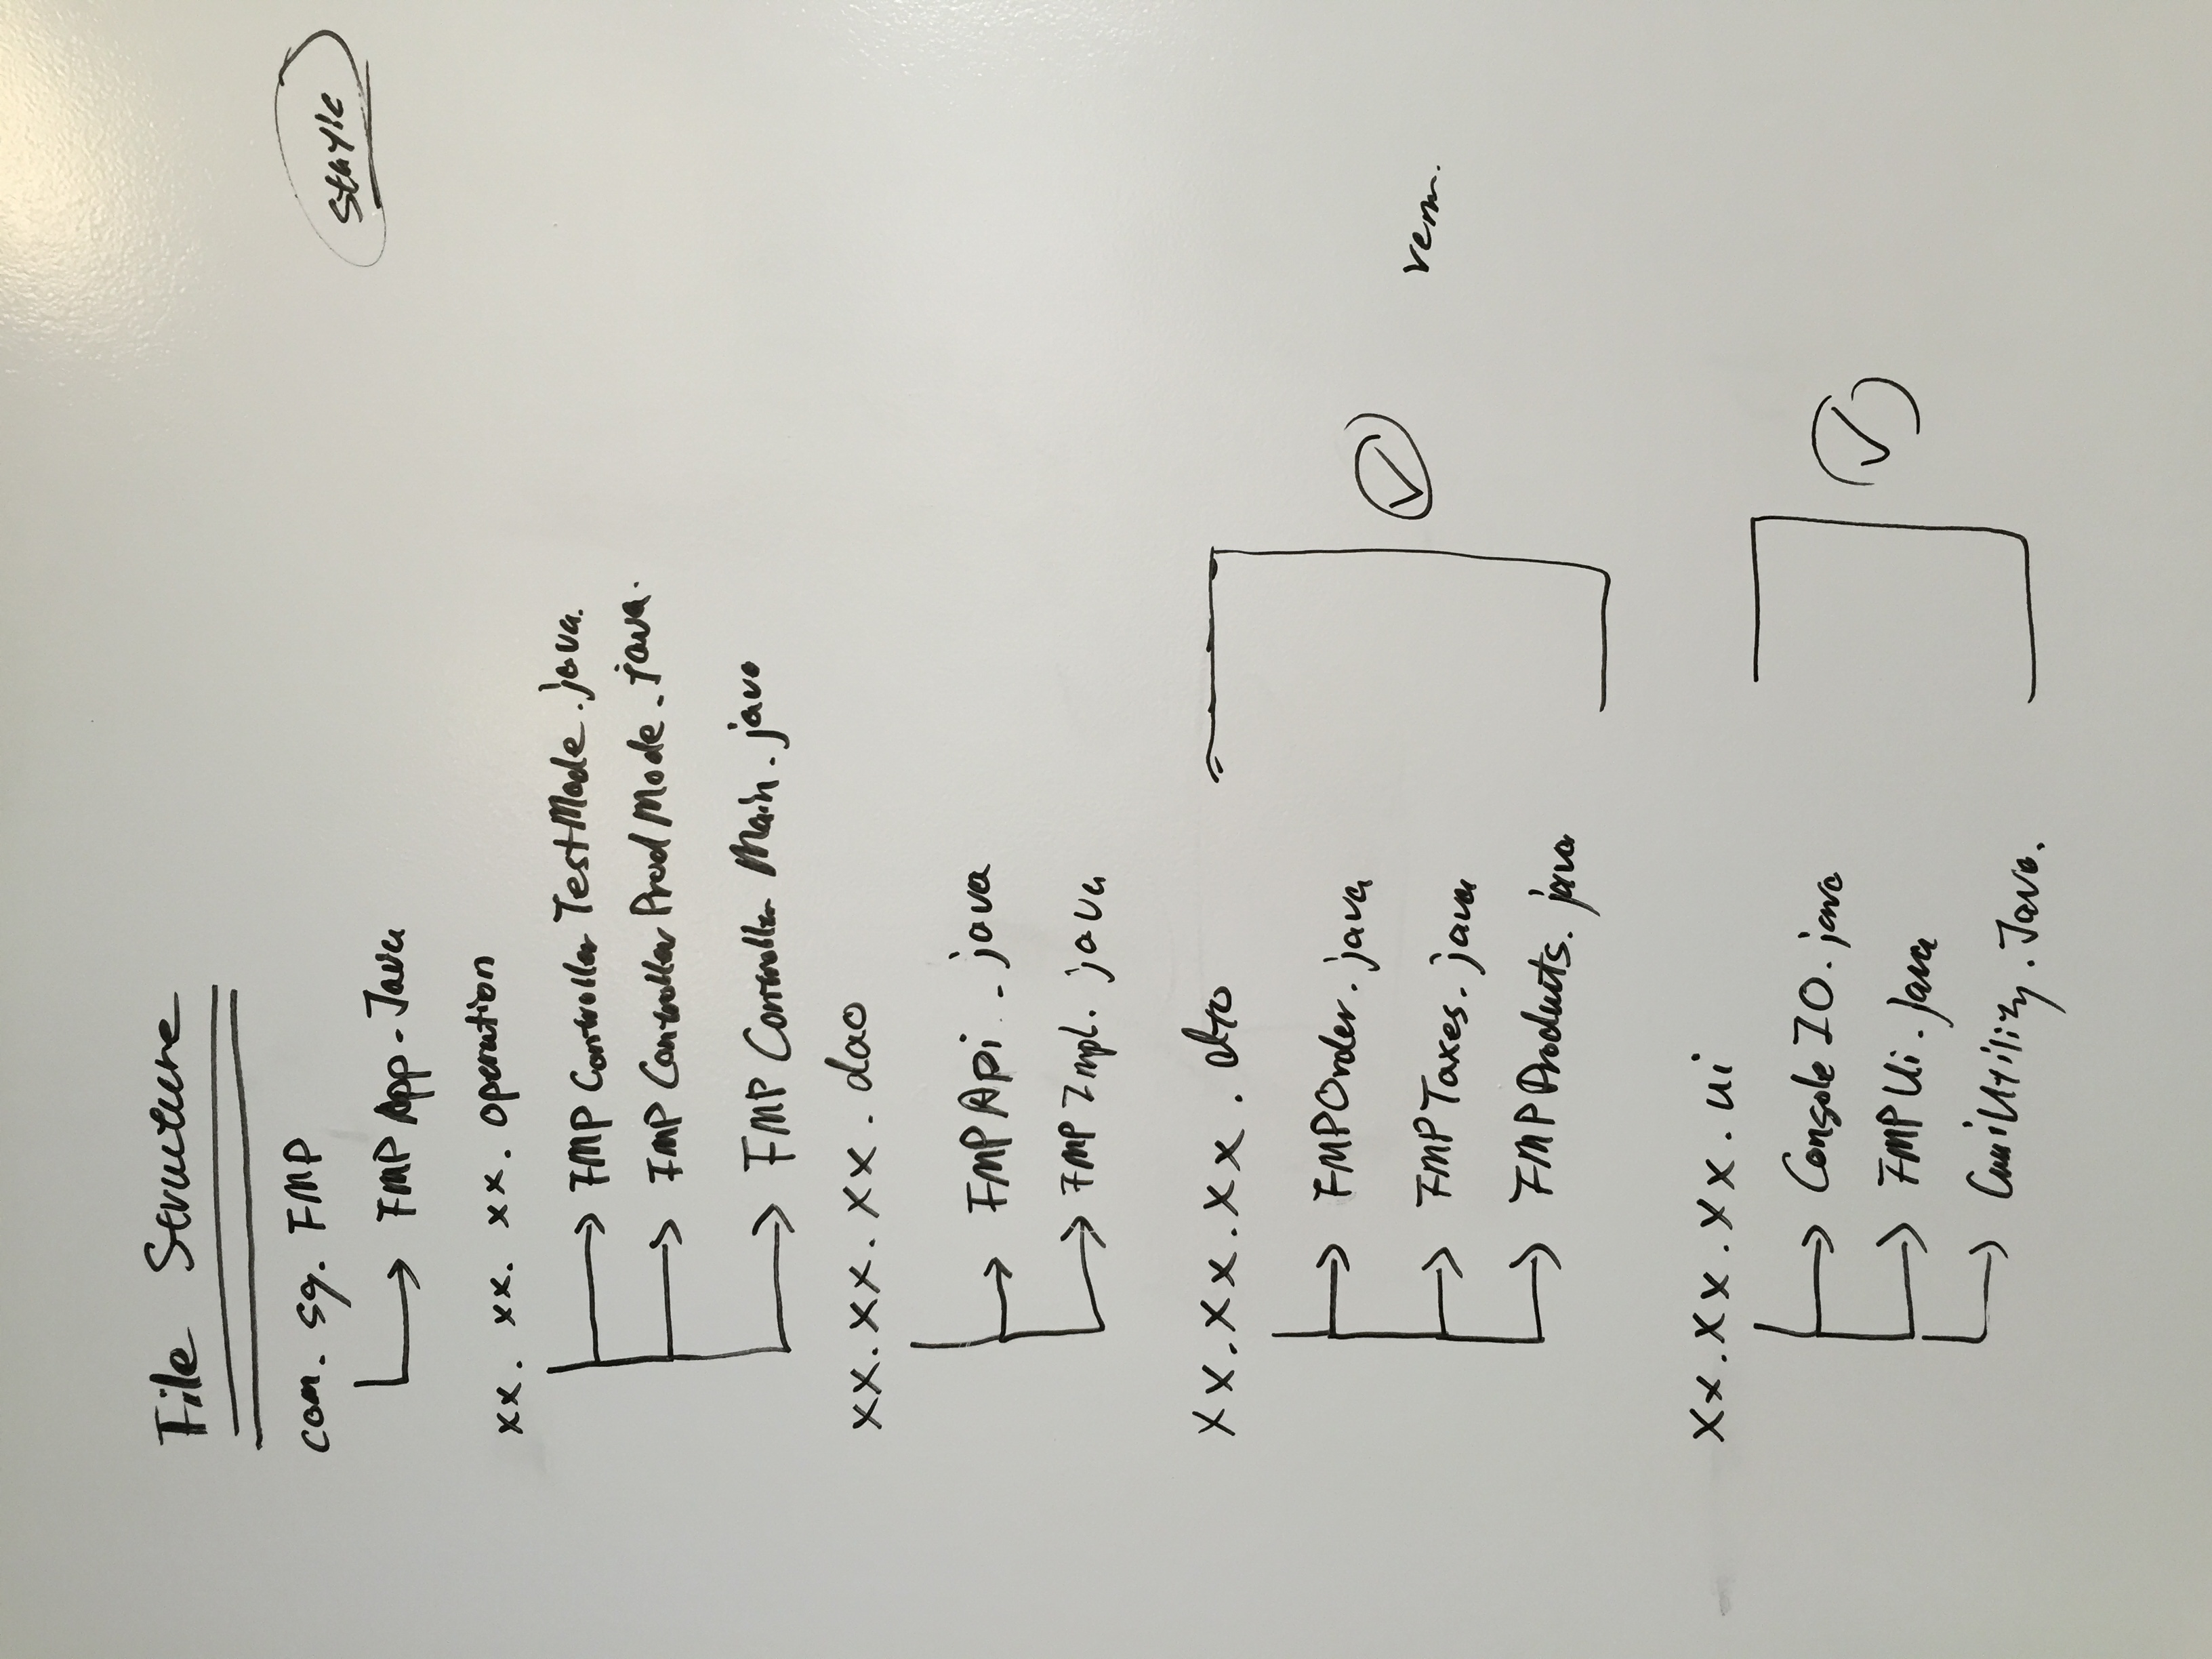 File Structure
com. sg. FMP
FMP App. Java
xx. xx. xx. operation
FMP Controller TestMode.java.
FMP Controller Prod Mode.java.
FMP Controller Main.java
xx.xx.xx.dao
FMP Api.java
FMP Impl.java
xx.xx.xx.dto
FMPOrder.java
FMP Taxes.java
FMP Products.java
xx.xx.xx.ui
Console IO.java
FMP Ui.java
Utility.Java.